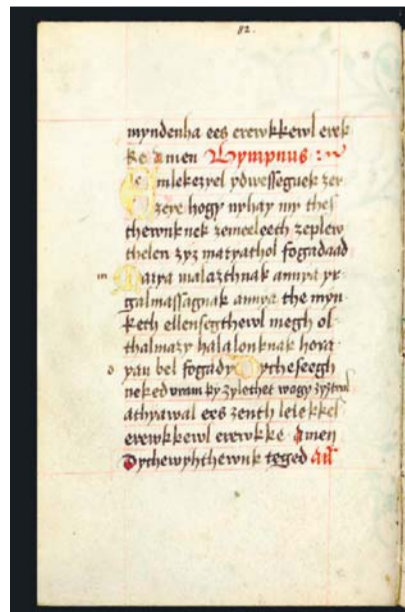 82.
myndenha ees erewkkewl erewk
ke Amen Hympnus
Emlekezyel ydwesseguek zer
zeye hogy nyhay my thes
thewnknek zemeeleeth zeplew
thelen zyz maryathol fogadaad
m Marya malazthnak annya yr
galmassagnak annya the myn
keth ellensegthewl megh ol
thalmazy halalonknak hora
yan bel fogady Dycheseegh
neked vram ky zylethet wagy zyztwl
athyawal ees zenth lelekkel
erewkkewl erewkke Amen
Dychewyhthewnk teged